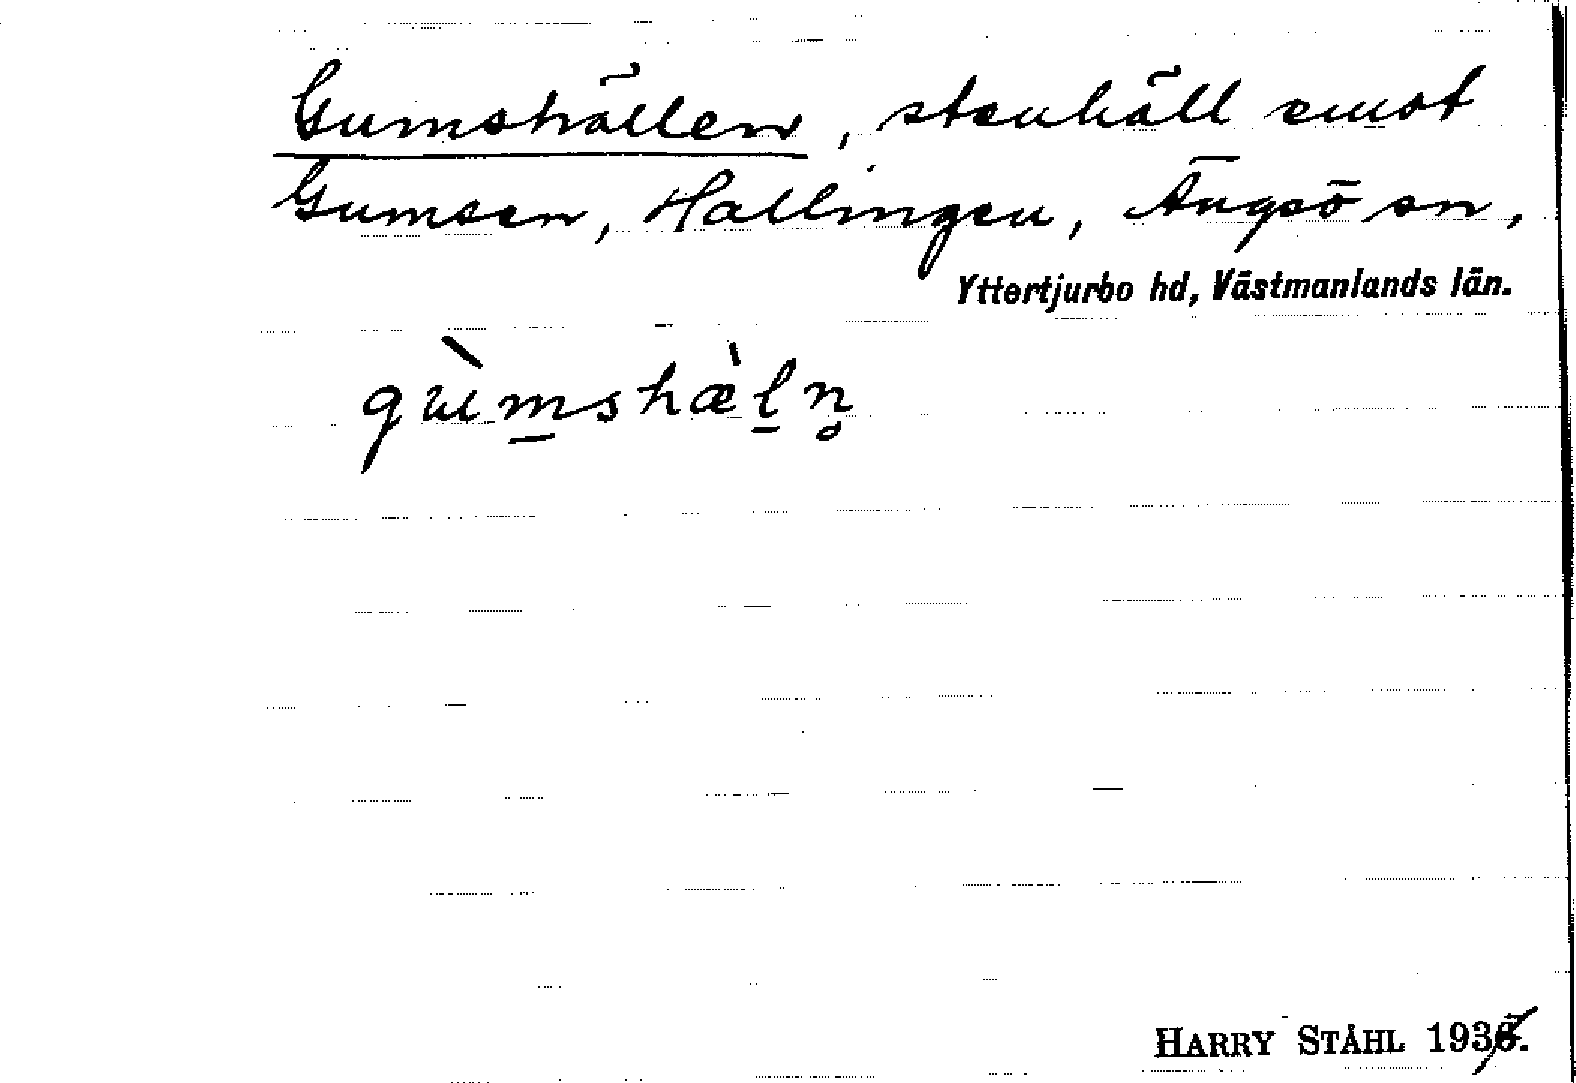 Gumshällen, stenhäll emot
Gumsen, Hallingen, Ängsö sn,
Yttertjurbo hd, Västmanlands län.
gùmshæ̀ln̥
HARRY STÅHL 193